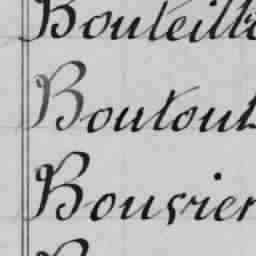 Bouteill
Boutout
Bouvier